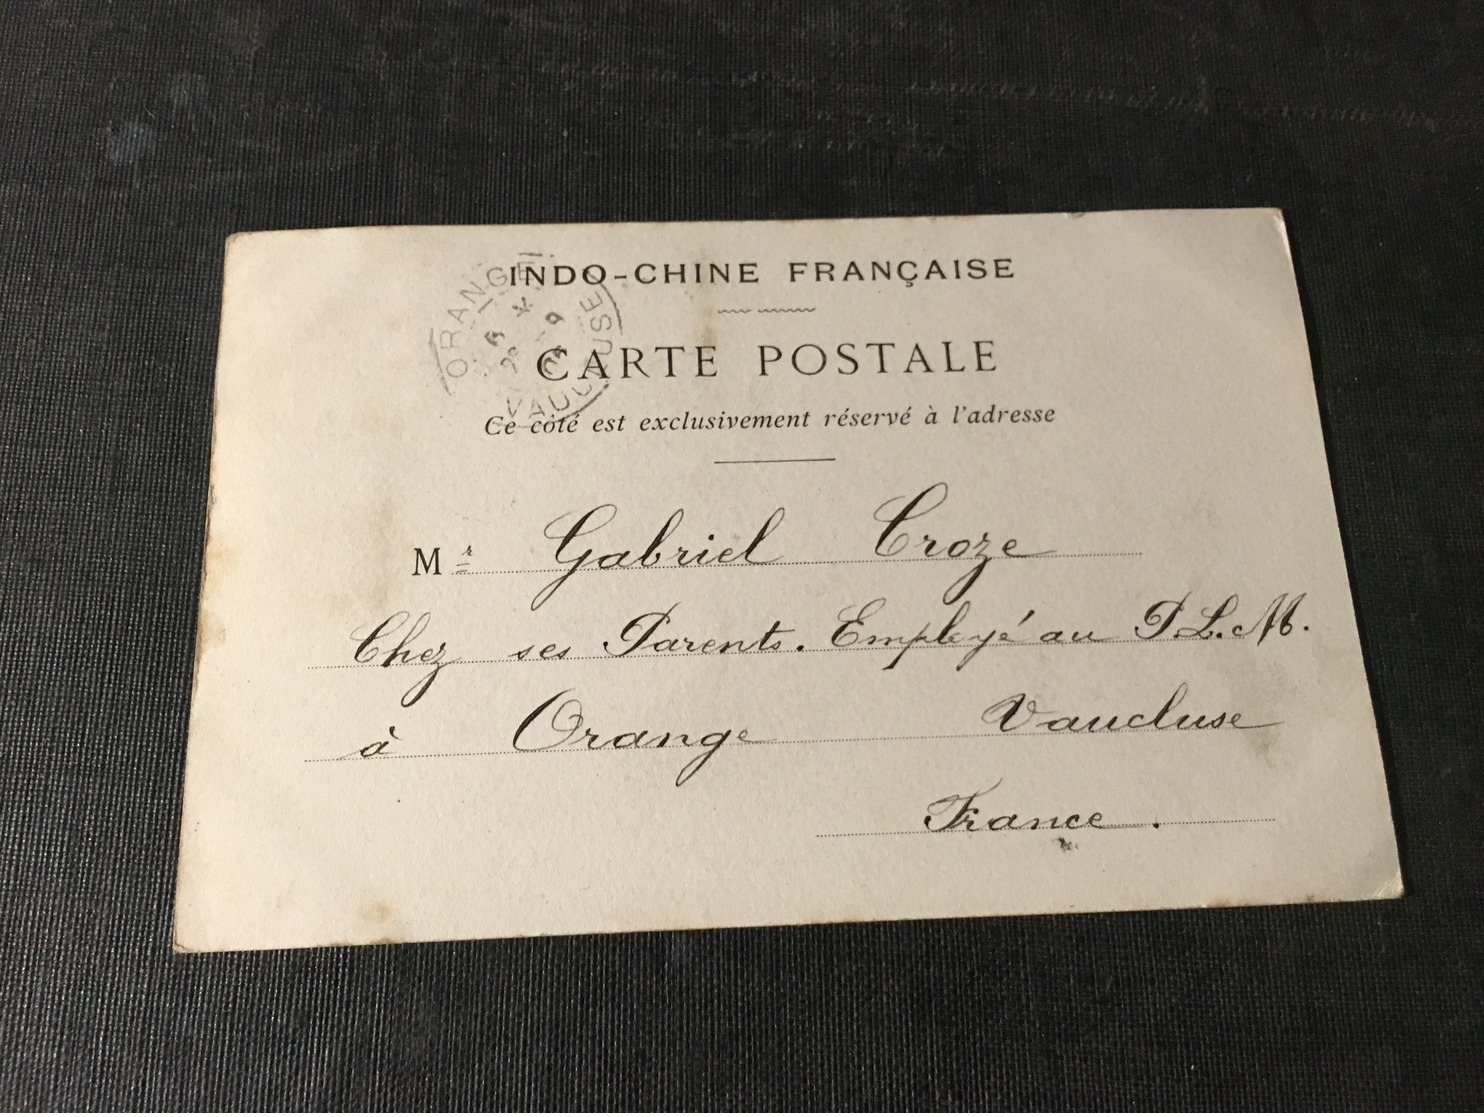 INDO-CHINE FRANÇAISE
ORANGE
VAUCLUSE
CARTE POSTALE
Ce côté est exclusivement réservé à l'adresse
Mr Gabriel Croze
Chez ses Parents. Employé au P.L.M.
à Orange Vaucluse
France.